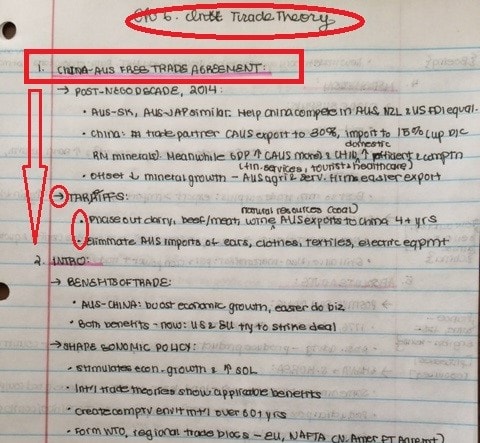 Ch 6. Int'l Trade Theory
1. CHINA-AUS FREE TRADE AGREEMENT:
→ POST-NEGO DECADE, 2014:
• AUS-SK, AUS-JAP similar. Help China compete in AUS, NZL & US FDI equal.
• China: #1 trade partner (AUS export to 30%, import to 18%) (up b/c
RN minerals). Meanwhile GDP ↑ (AUS more) & CHIN domestic ↑ efficient & comptn
(↑ in services, tourist & healthcare)
• Offset ↓ mineral growth – AUS agri & serv. firms easier export
→ TARIFFS:
natural resources (coal)
• Phase out dairy, beef/meat, wine ^ AUS exports to China 4+ yrs
• Eliminate AUS imports of cars, clothes, textiles, electric eqpmt
2. INTRO:
→ BENEFITS OF TRADE:
• AUS-CHINA: boost economic growth, easier do biz
• Both benefits – now: US & EU try to strike deal
→ SHAPE ECONOMIC POLICY:
• stimulates econ. growth & ↑ SOL
• Int'l trade theories show applicable benefits
• Create comptv envir int'l over 60+ yrs
• Form WTO, regional trade blocs – EU, NAFTA